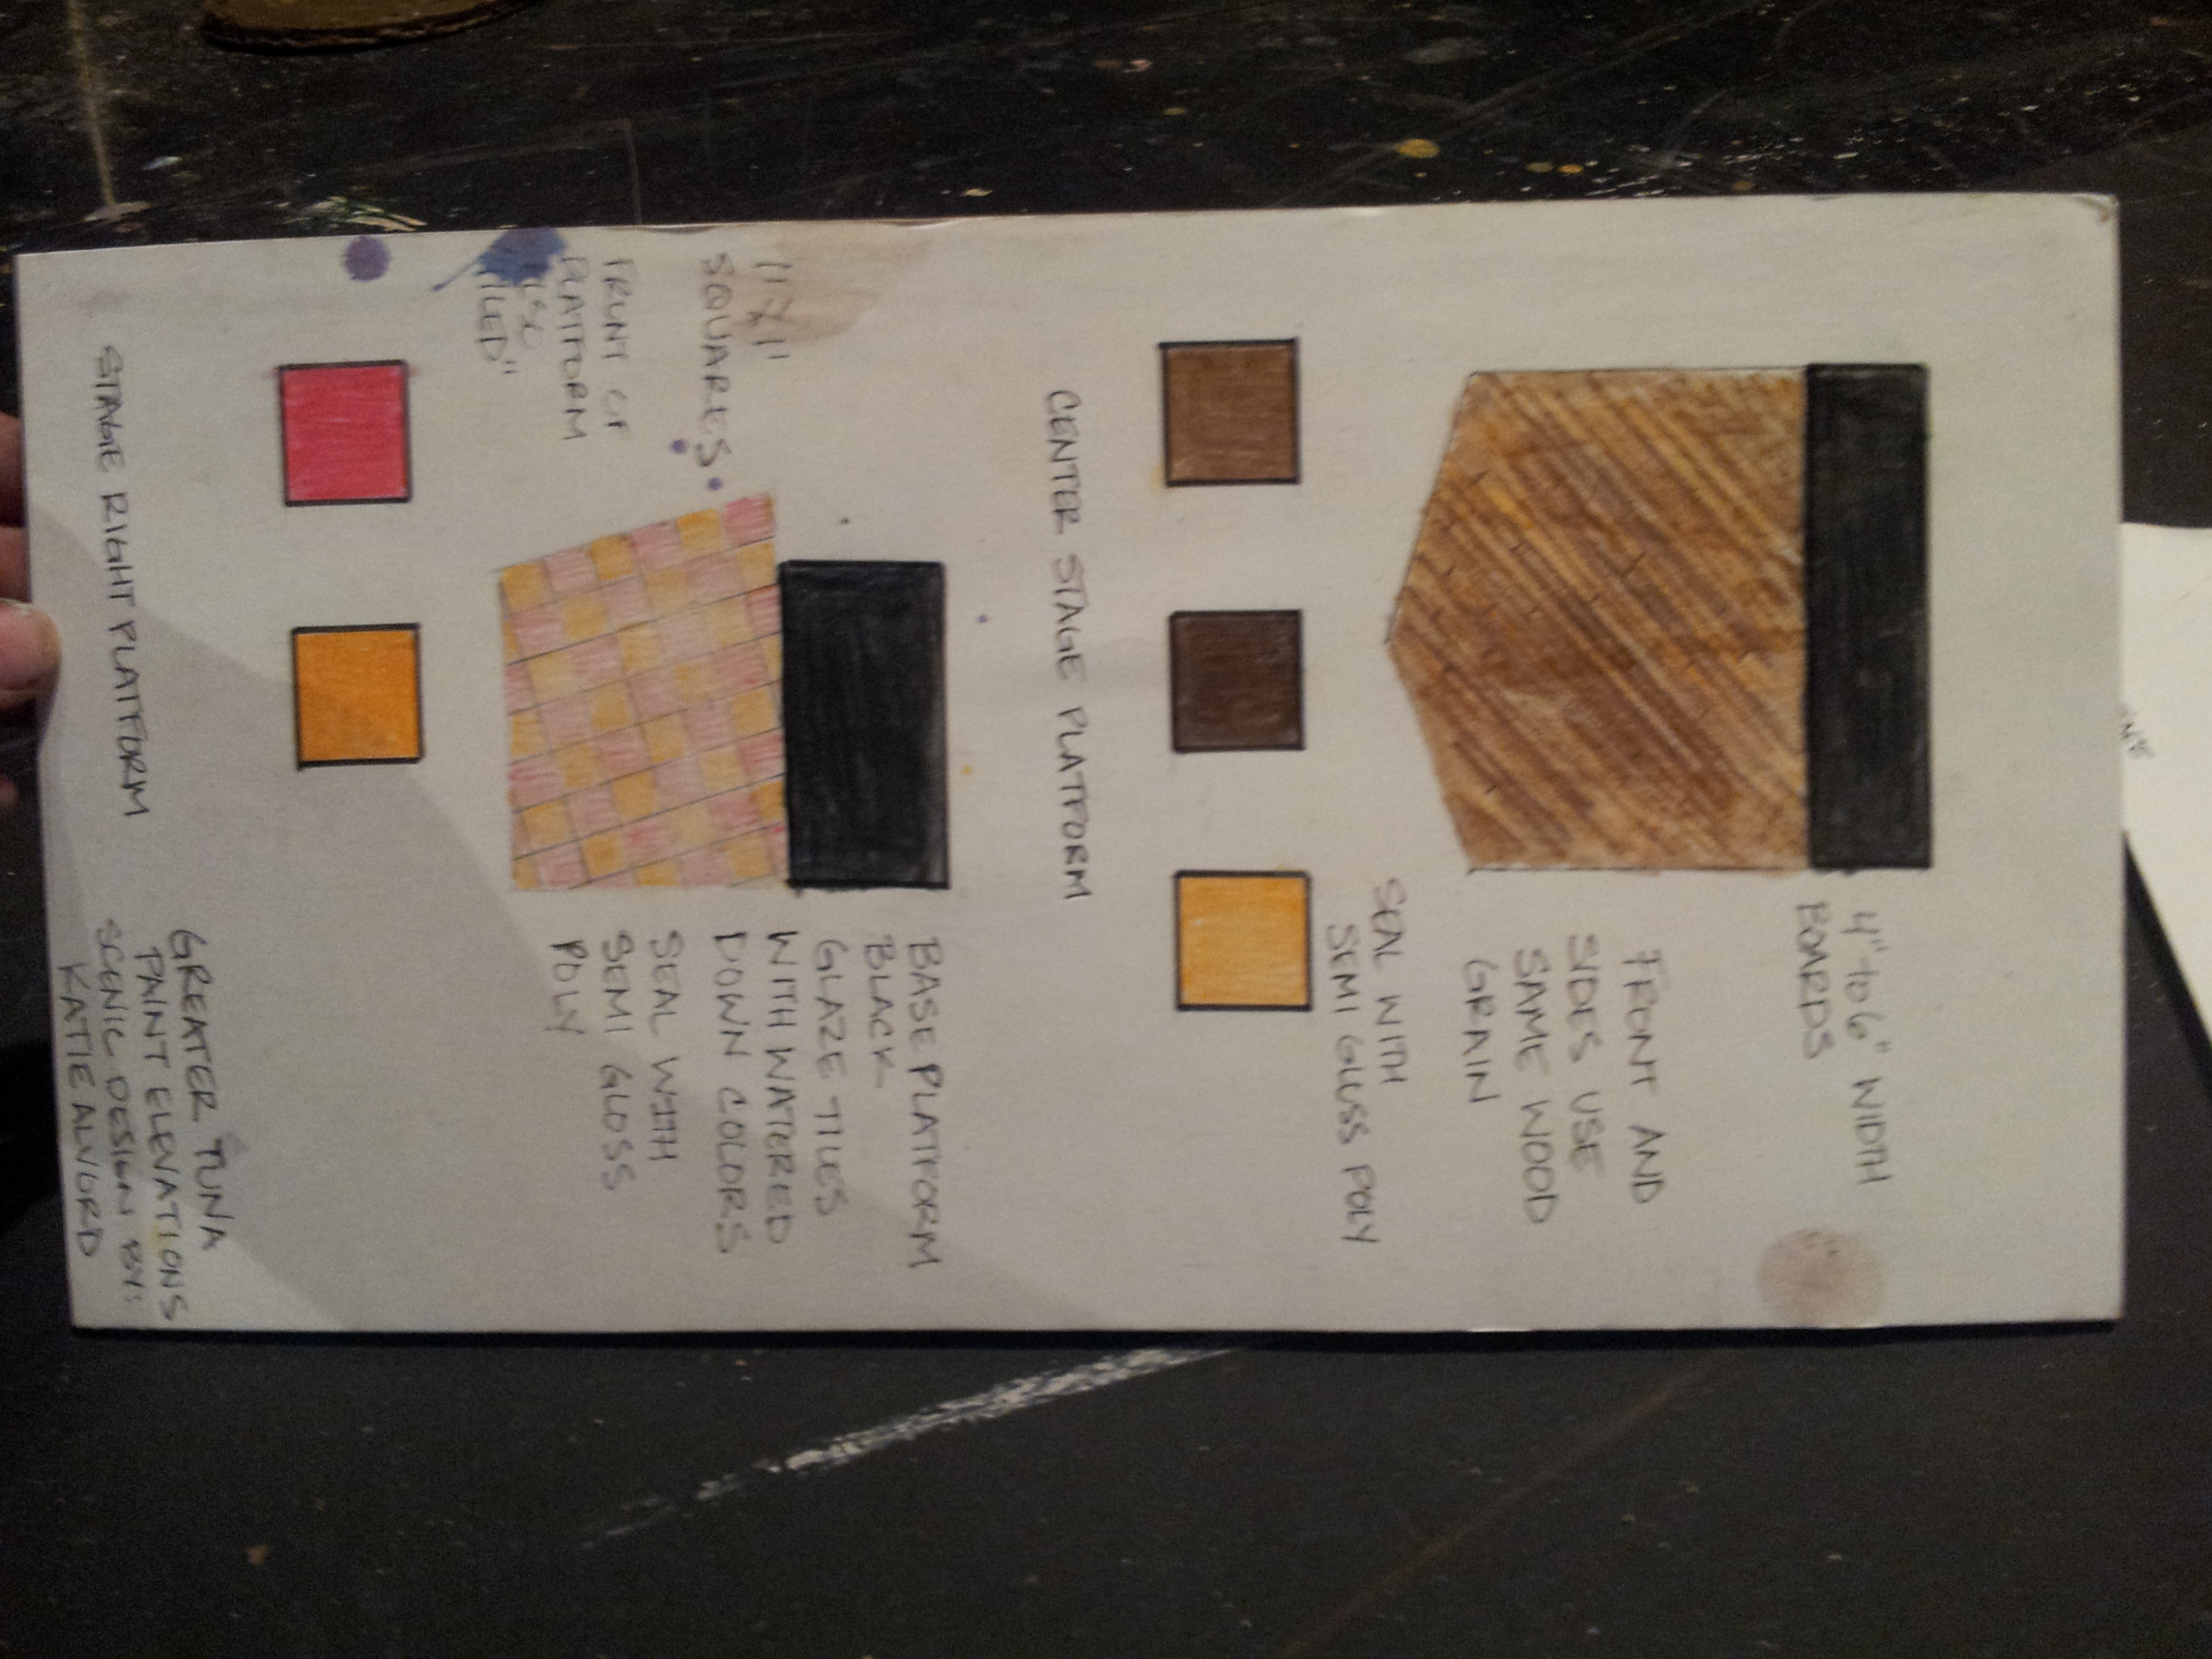 4" to 6" WIDTH
BOARDS
FRONT AND
SIDES USE
SAME WOOD
GRAIN
SEAL WITH
SEMI GLOSS POLY
CENTER STAGE PLATFORM
1'X1'
SQUARES
FRONT OF
PLATFORM
BASE PLATFORM
BLACK
GLAZE TILES
WITH WATERED
DOWN COLORS
SEAL WITH
SEMI GLOSS
POLY
STAGE RIGHT PLATFORM
GREATER TUNA
PAINT ELEVATIONS
SCENIC DESIGN BY:
KATIE ALVORD